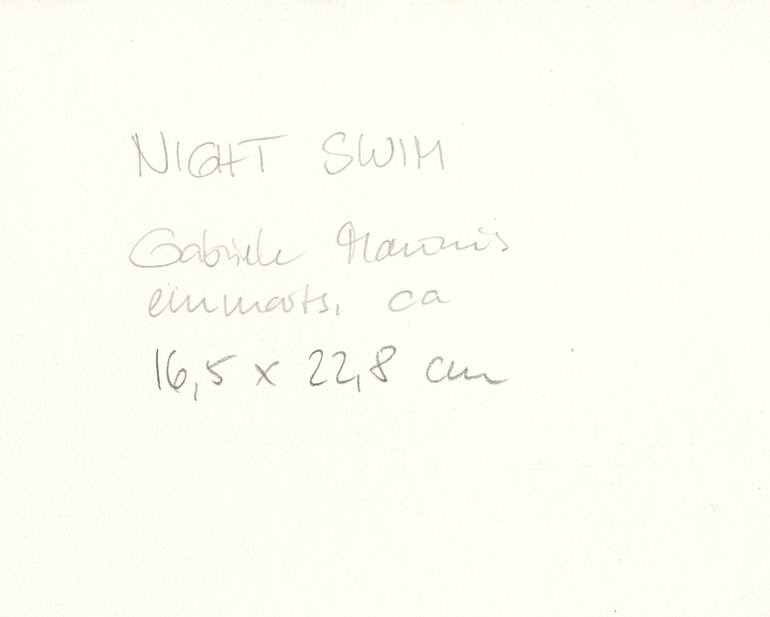 NIGHT SWIM
Gabriele Maurus
emmarts. ca
16,5 x 22,8 cm